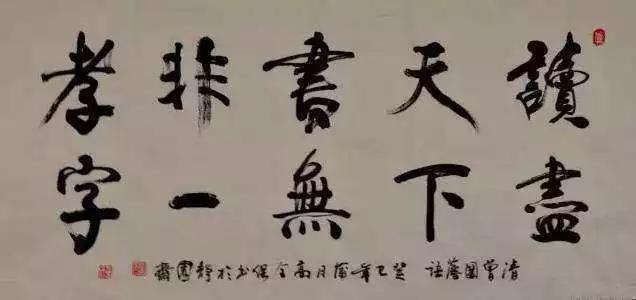 讀盡
天下
書無
非一
孝字
清曾國藩語 癸巳年蒲月高全保书於靜